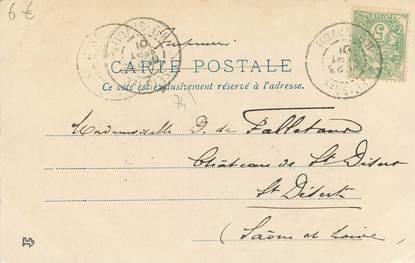 6€
Imprimé
CARTE POSTALE
Ce côté est exclusivement réservé à l'adresse.
74
Mademoiselle D. de
Château de St Désert
St Désert
(Saône et Loire)